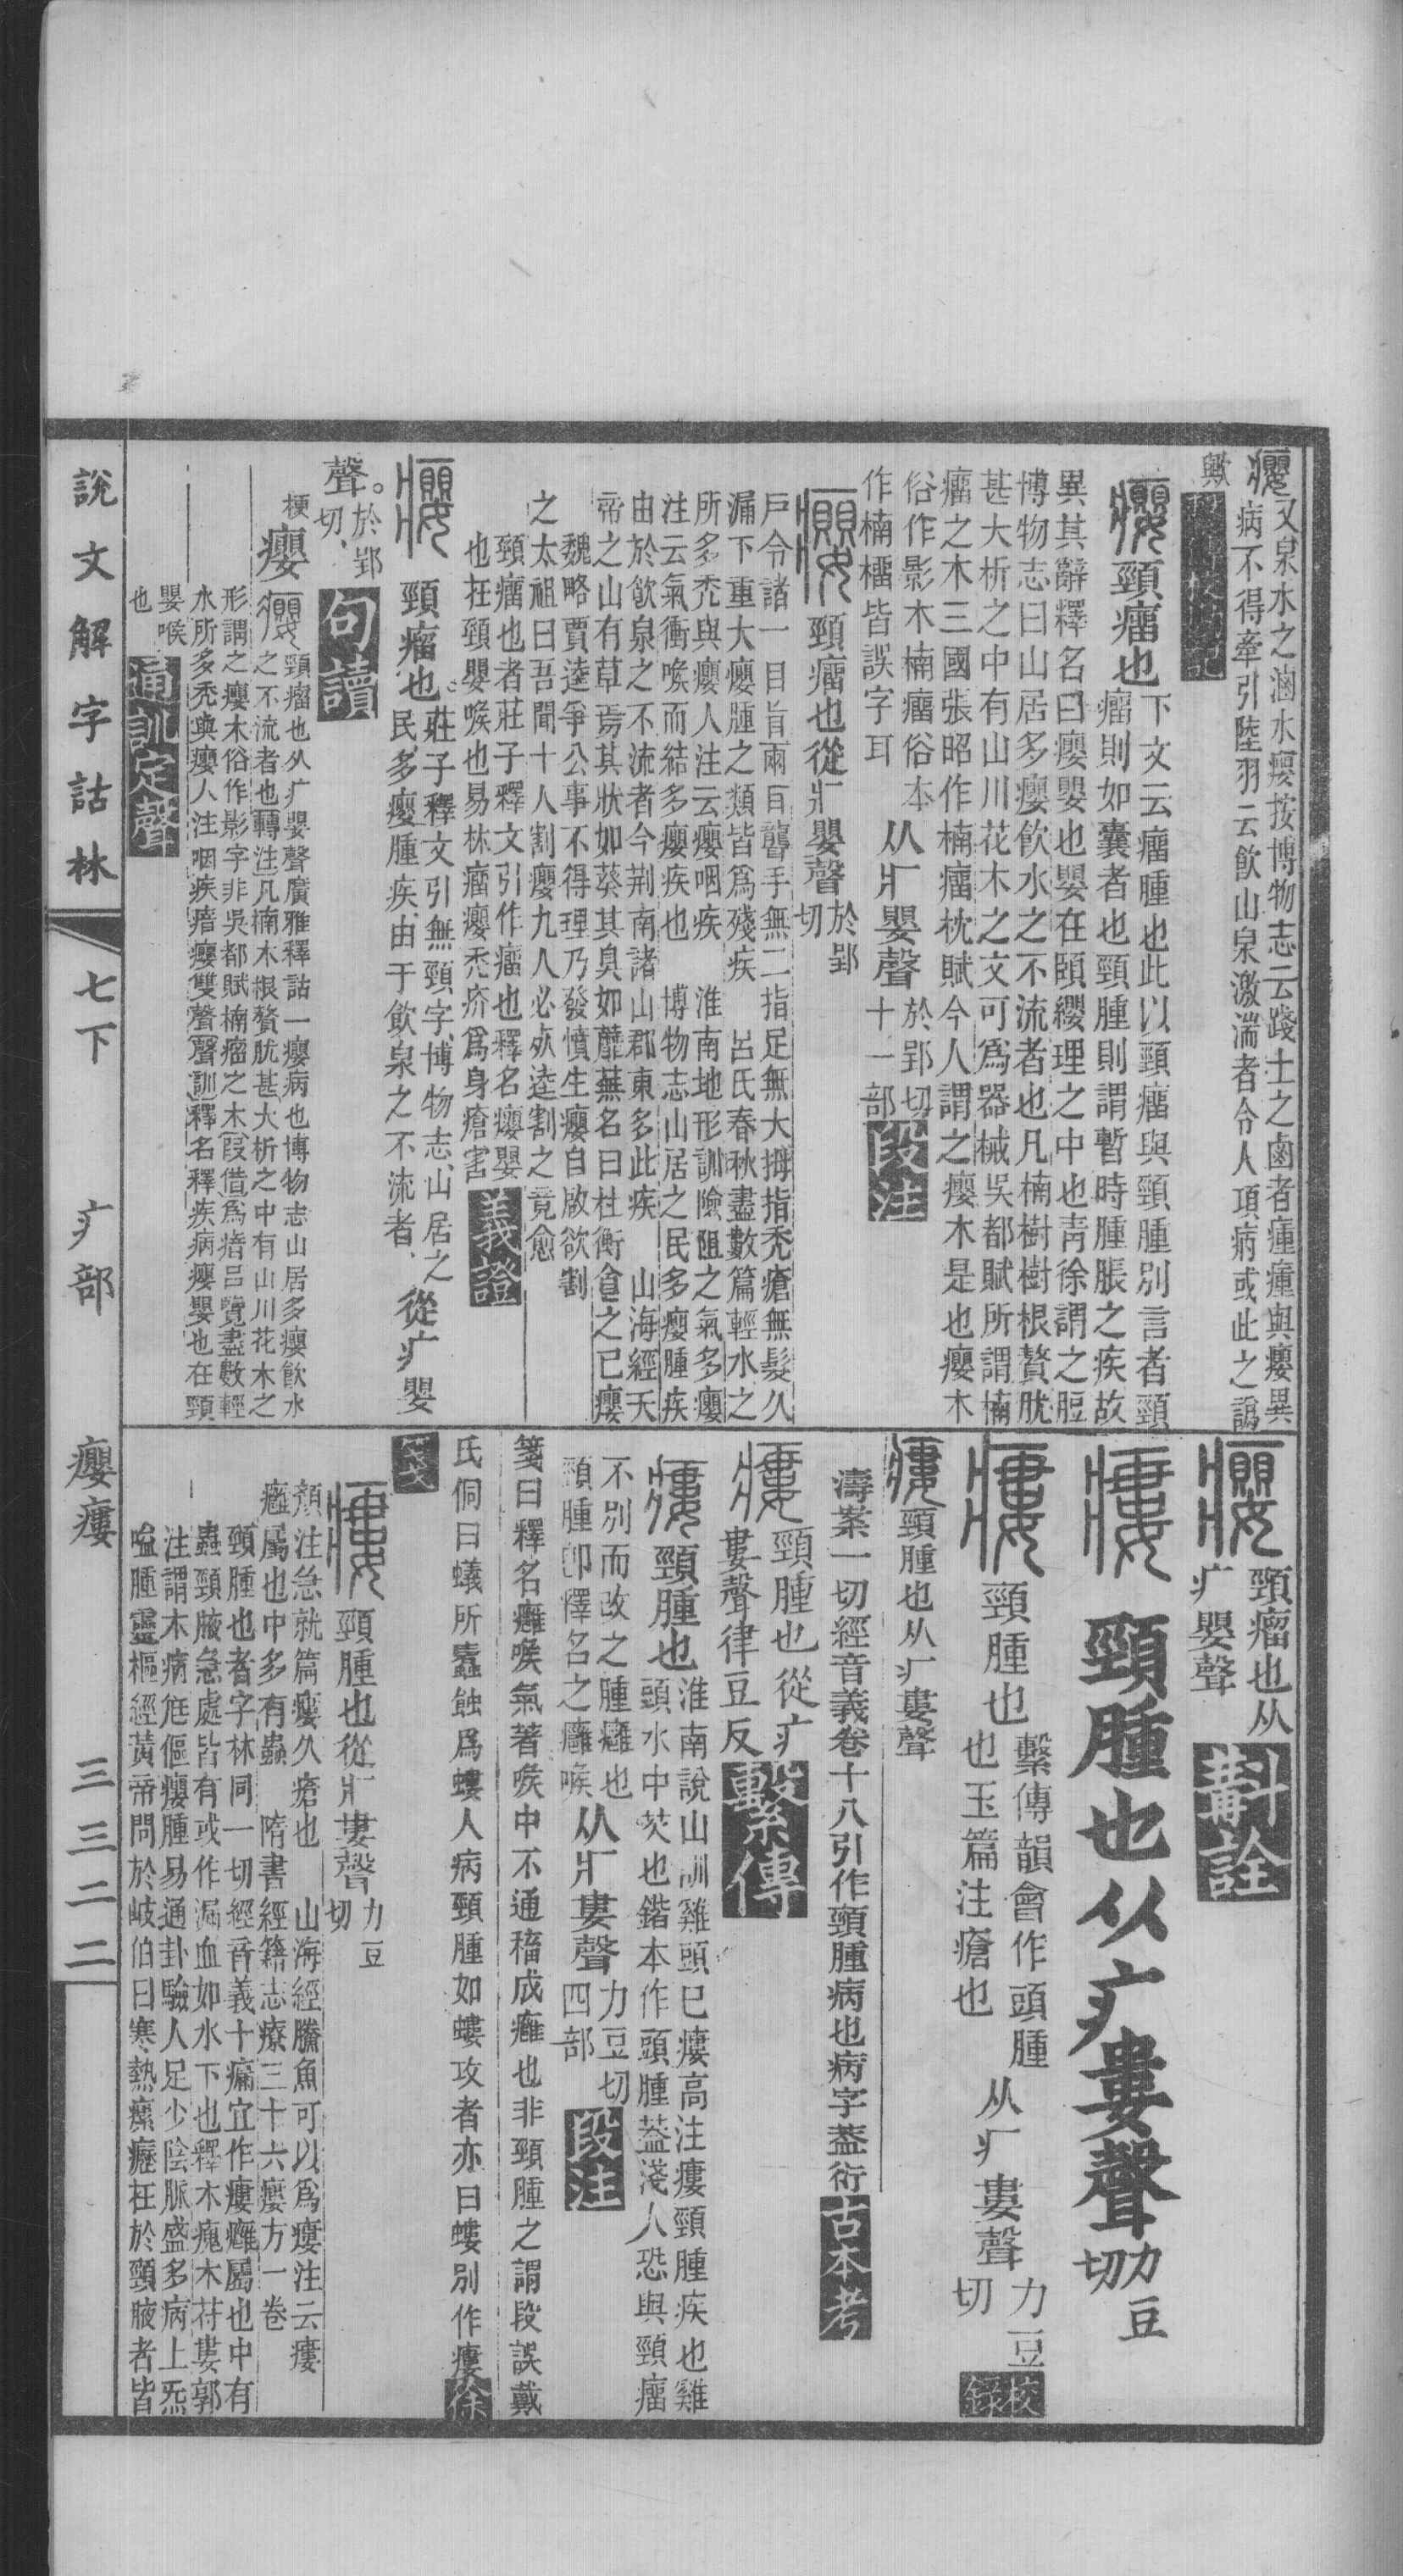 癭又泉水之滷水癭按博物志云踐土之鹵者瘇瘇與癭異
病不得牽引陸羽云飲山泉激湍者令人項病或此之譌
歟
癭頸瘤也下文云瘤腫也此以頸瘤與頸腫別言者頸
瘤則如囊者也頸腫則謂暫時腫脹之疾故
異其辭釋名曰癭嬰也嬰在頤纓理之中也靑徐謂之脰
博物志曰山居多癭飲水之不流者也凡楠樹樹根贅肬
甚大析之中有山川花木之文可爲器械吳都賦所謂楠
瘤之木三國張昭作楠瘤枕賦今人謂之癭木是也癭木
俗作影木楠瘤俗本从疒嬰聲於郢切十一部段注
作楠橊皆誤字耳
癭頸瘤也從疒嬰聲於郢切
戶令諸一目盲兩耳聾手無二指足無大拇指禿瘡無髮久
漏下重大癭腫之類皆爲殘疾 呂氏春秋盡數篇輕水之
所多禿與癭人注云癭咽疾 淮南地形訓險阻之氣多癭
注云氣衝喉而結多癭疾也 博物志山居之民多癭腫疾
由於飲泉之不流者今荆南諸山郡東多此疾 山海經天
帝之山有草焉其狀如葵其臭如蘼蕪名曰杜衡食之已癭
魏略賈逵爭公事不得理乃發憤生癭自啟欲割
之太祖曰吾聞十人割癭九人必死逵割之竟愈
頸瘤也者莊子釋文引作瘤也釋名癭嬰
也在頸嬰喉也易林瘤癭禿疥爲身瘡害義證
癭頸瘤也莊子釋文引無頸字博物志山居之
民多癭腫疾由于飲泉之不流者從疒嬰
聲於郢切句讀
梗癭癭頸瘤也从疒嬰聲廣雅釋詁一癭病也博物志山居多癭飲水
之不流者也轉注凡楠木根贅肬甚大析之中有山川花木之
形謂之癭木俗作影字非吳都賦楠瘤之木叚借爲瘖呂覽盡數輕
水所多禿與癭人注咽疾瘖癭雙聲聲訓釋名釋疾病癭嬰也在頸
嬰喉也通訓定聲
癭頸瘤也从疒嬰聲斠詮
瘻頸腫也从疒婁聲力豆切
瘻頸腫也繫傳韻會作頭腫也玉篇注瘡也从疒婁聲力豆切校錄
瘻頸腫也从疒婁聲
濤案一切經音義卷十八引作頸腫病也病字葢衍古本考
瘻頸腫也從疒婁聲律豆反繫傳
瘻頸腫也淮南說山訓雞頭已瘻高注瘻頸腫疾也雞
頭水中芡也鍇本作頭腫葢淺人恐與頸瘤
不別而改之腫癰也从疒婁聲力豆切四部段注
頸腫卽釋名之癰喉
箋曰釋名癰喉氣著喉中不通穡成癰也非頸腫之謂段誤戴
氏侗曰蟻所蠹蝕爲螻人病頸腫如螻攻者亦曰螻別作瘻徐
箋
瘻頸腫也從疒婁聲力豆切
顏注急就篇瘻久瘡也 山海經騰魚可以爲瘻注云瘻
癰屬也中多有蟲 隋書經籍志療三十六瘻方一卷
頸腫也者字林同一切經音義十痛宜作瘻癰屬也中有
蟲頸腋急處皆有或作漏血如水下也釋木瘣木苻婁郭
注謂木病尫傴癭腫易通卦驗人足少陰脈盛多病上炁
嗌腫靈樞經黃帝問於岐伯曰寒熱瘰癧在於頸腋者皆
說文解字詁林 七下 疒部 癭瘻 三三二二